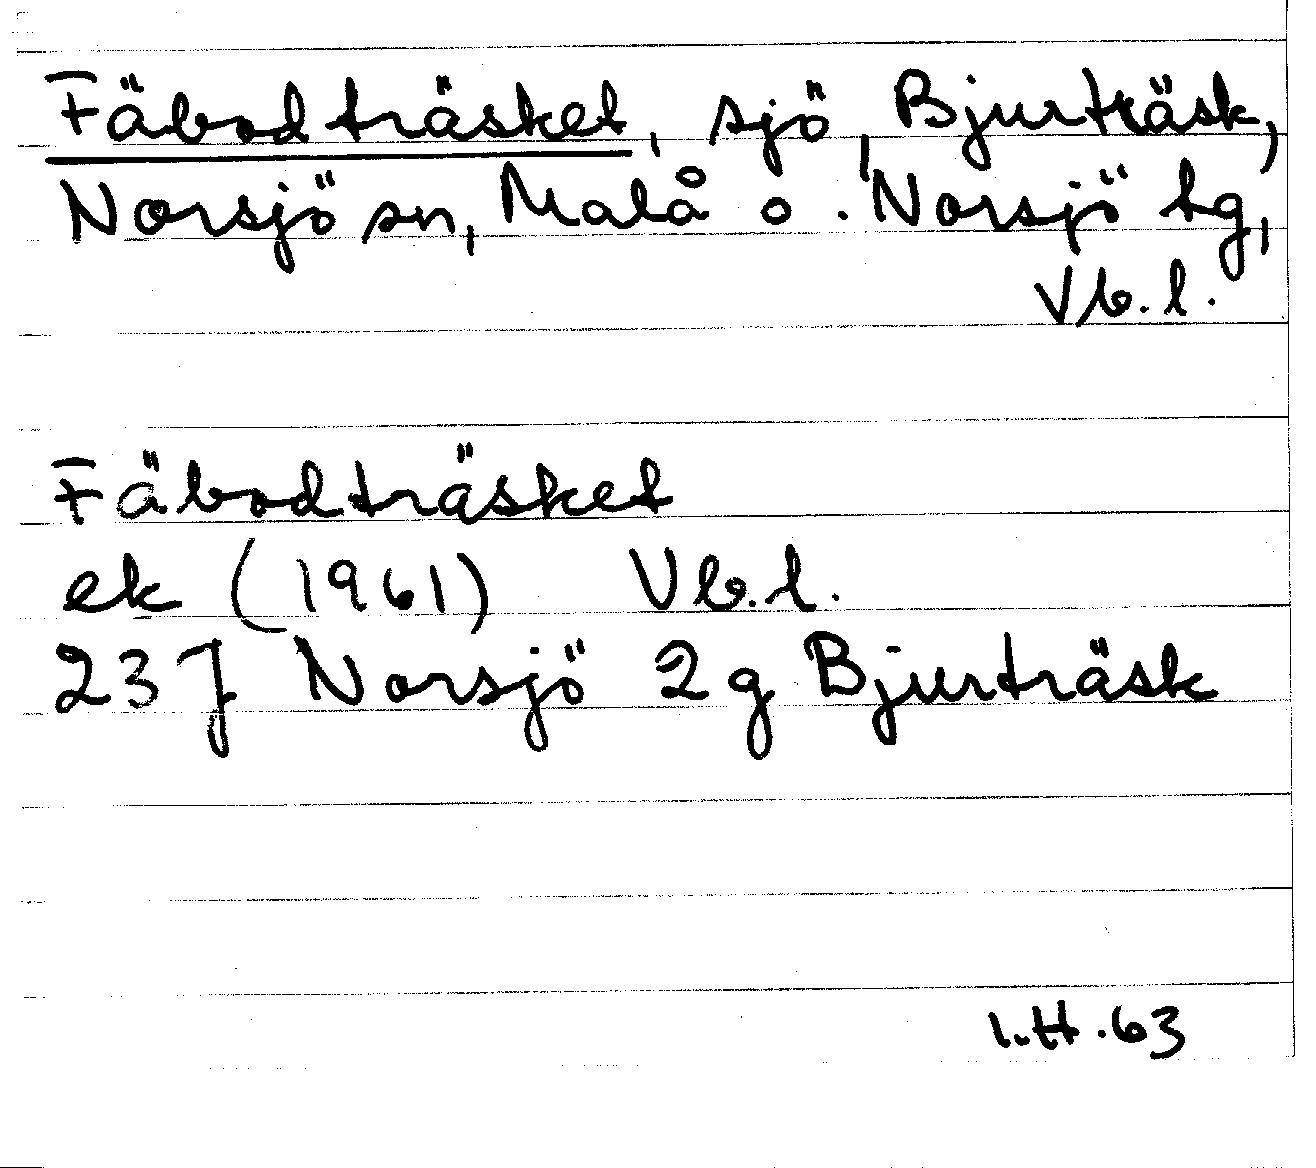 Fäbodträsket, sjö, Bjurträsk,
Norsjö sn, Malå o. Norsjö tg,
Vb. l.
Fäbodträsket
ek (1961) Vb. l.
23J Norsjö 2g Bjurträsk
I.H. 63